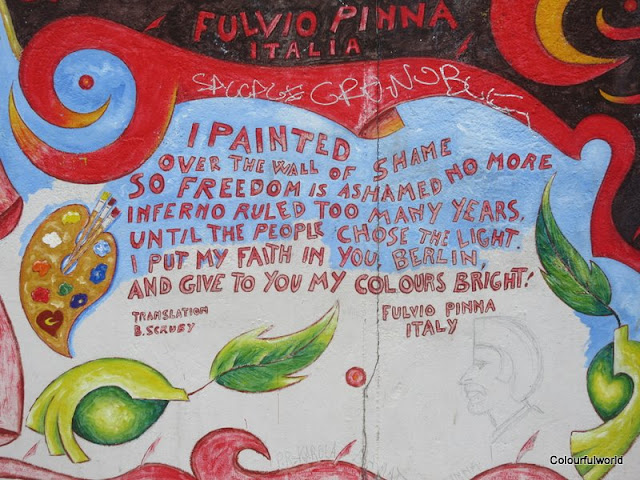 FULVIO PINNA
ITALIA
I PAINTED
OVER THE WALL OF SHAME
SO FREEDOM IS ASHAMED NO MORE
INFERNO RULED TOO MANY YEARS.
UNTIL THE PEOPLE CHOSE THE LIGHT.
I PUT MY FAITH IN YOU, BERLIN,
AND GIVE TO YOU MY COLOURS BRIGHT!
TRANSLATION
B. SCRUBY
FULVIO PINNA
ITALY
Colourfulworld